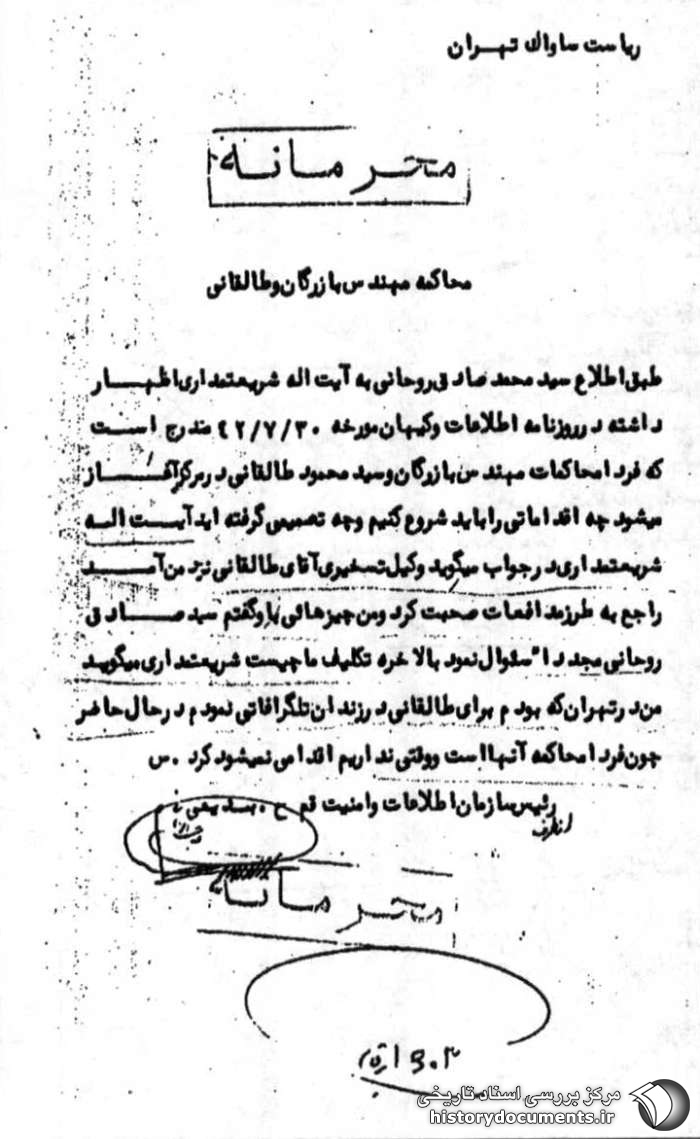 ریاست ساواک تهران
محرمانه
محاکمه مهندس بازرگان و طالقانی
طبق اطلاع سید محمد صادق روحانی به آیت اله شریعتمداری اظهار
داشته در روزنامه اطلاعات و کیهان مورخه ۴۲/۷/۳۰ مندرج است
که فردا محاکمات مهندس بازرگان و سید محمود طالقانی در مرکز آغاز
میشود چه اقداماتی را باید شروع کنیم و چه تصمیمی گرفته اید آیت اله
شریعتمداری در جواب میگوید وکیل تسخیری آقای طالقانی نزد من آمد
راجع به طرز مدافعات صحبت کرد و من چیزهائی باو گفتم سید صادق
روحانی مجدداً سئوال نمود بالاخره تکلیف ما چیست شریعتمداری میگوید
من در تهران که بودم برای طالقانی در زندان تلگرافاتی نمودم در حال حاضر
چون فردا محاکمه آنها است و وقتی نداریم اقدامی نمیشود کرد . س
رئیس سازمان اطلاعات و امنیت قم ح . بدیعی
از طرف
محرمانه
مرکز بررسی اسناد تاریخی
historydocuments.ir